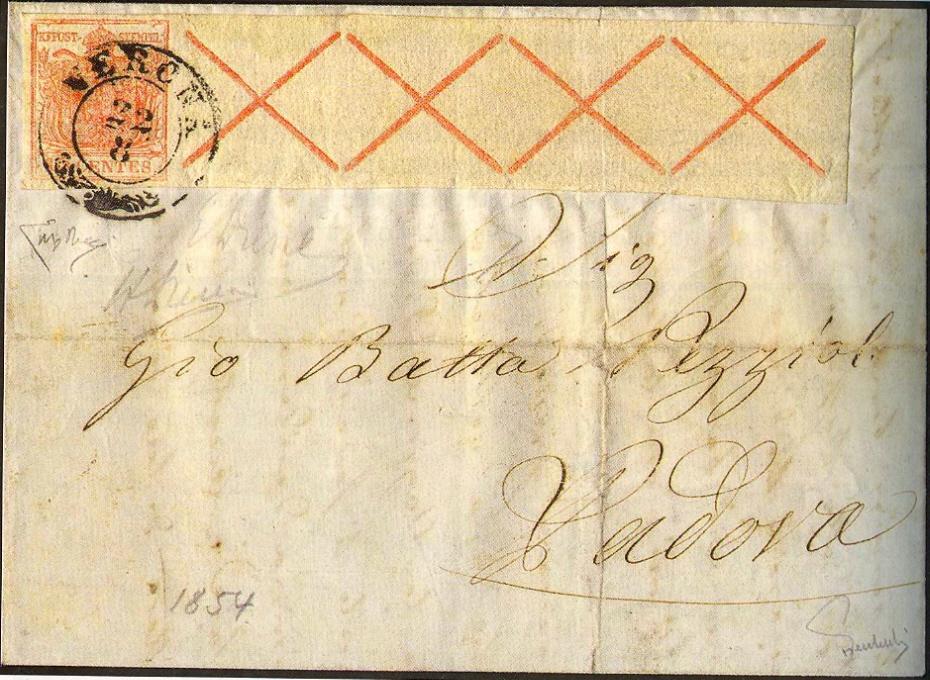 KKPOST- STEMPEL
CENTES
VERONA
22
8
Sig
Gio Batta Pezziol
Padova
1854